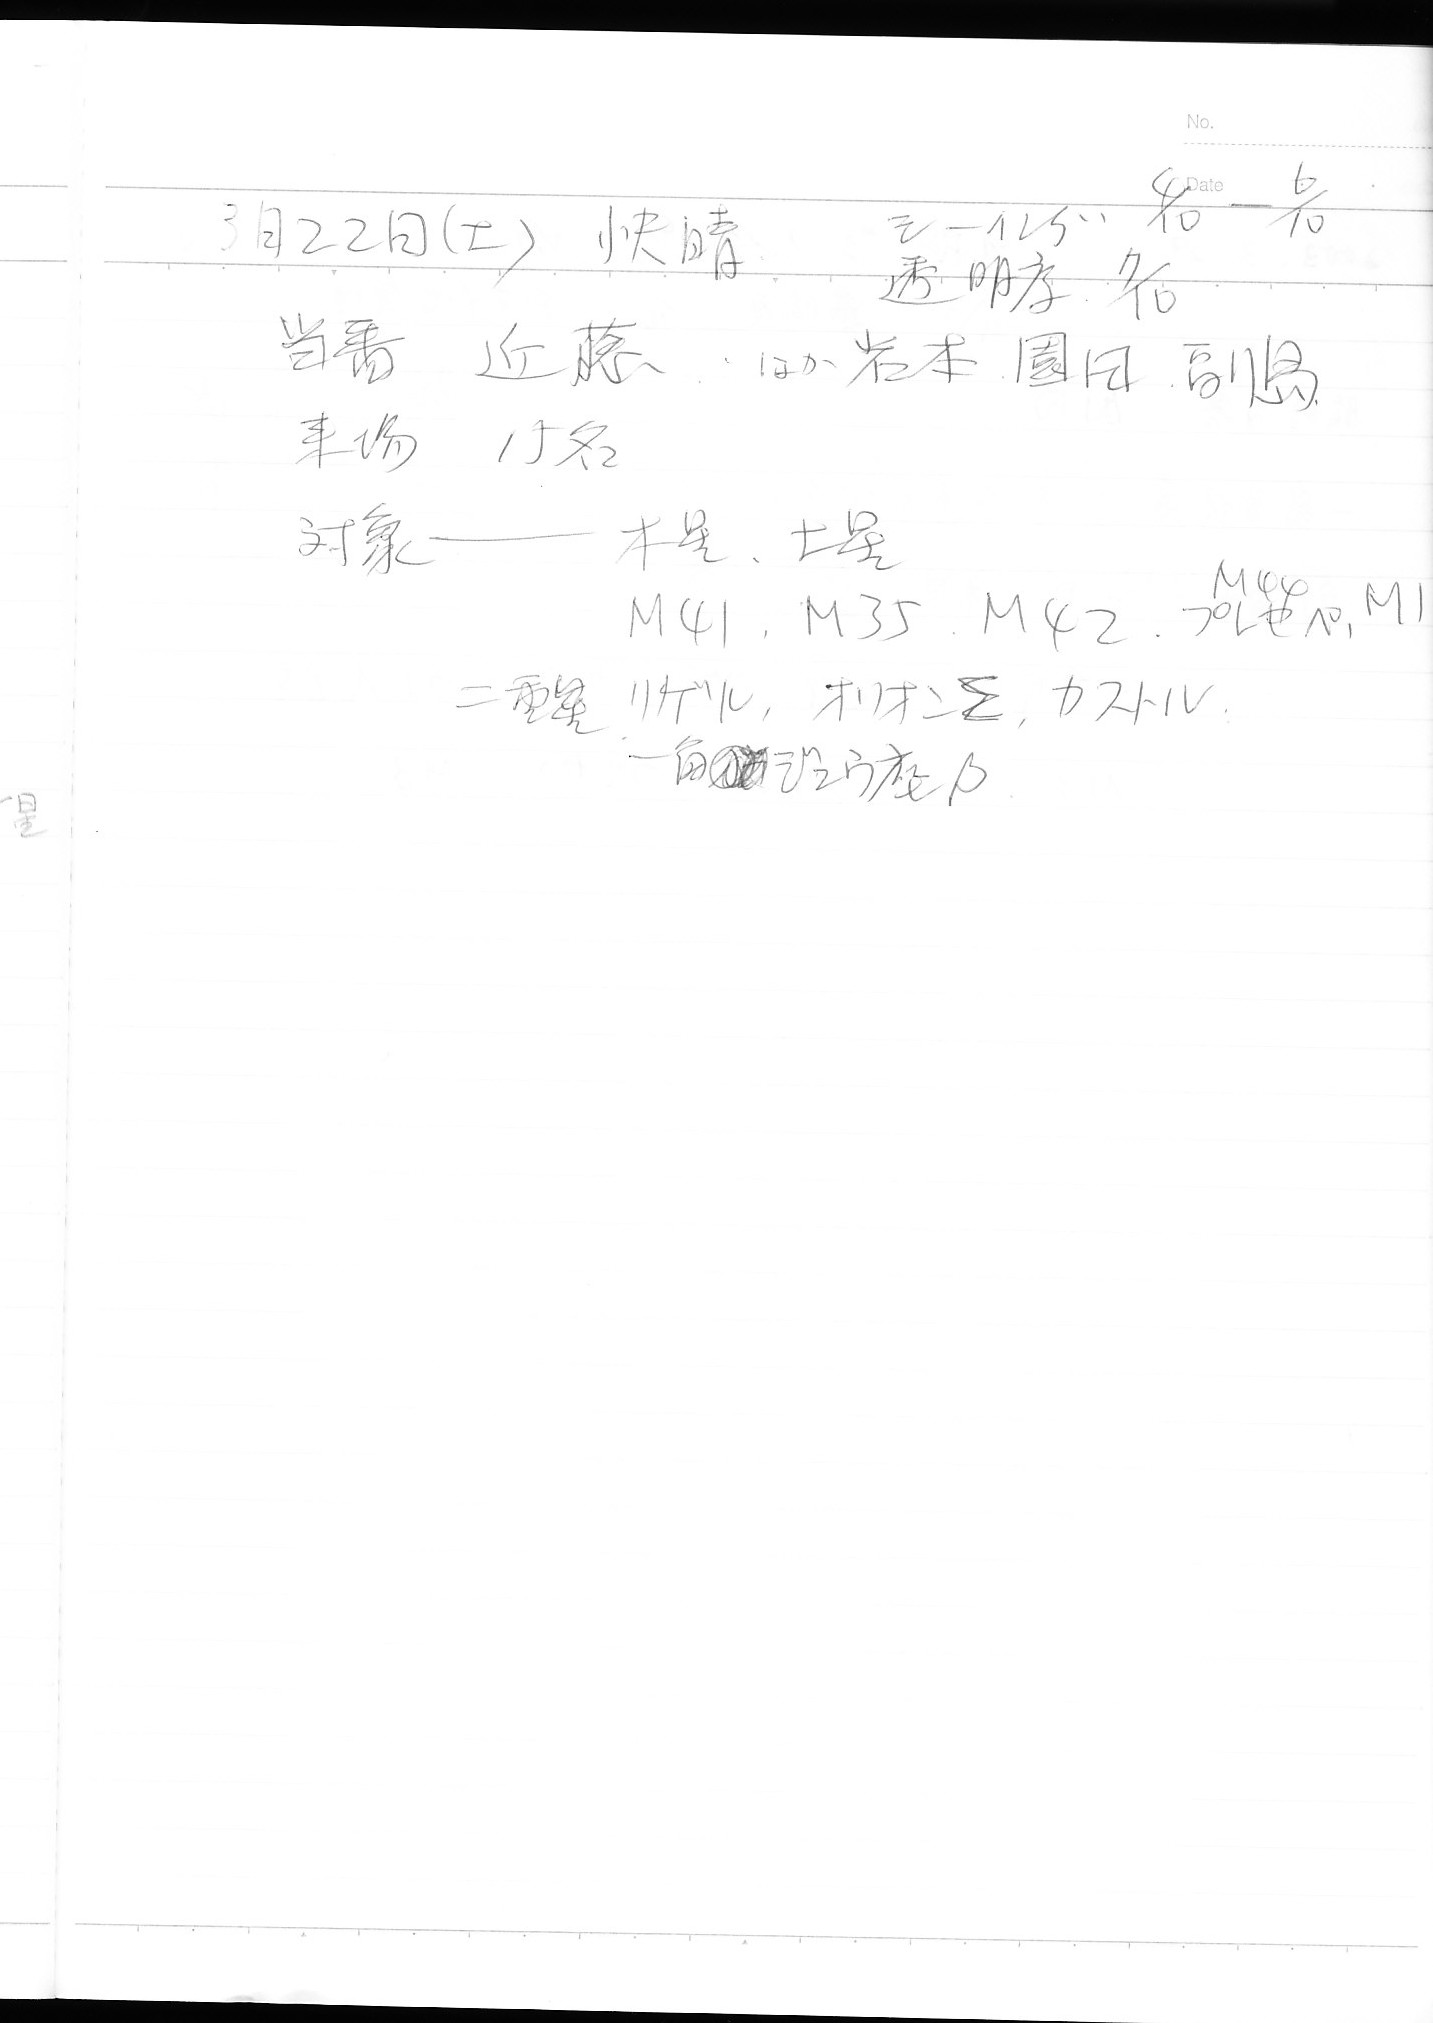 No.
Date
3月22日(土) 快晴 シーイング 4/10 — 6/10
透明度 7/10
当番 近藤 ほか 岩本 園田 副島
来場 15名
対象 ―― 木星、土星
M41, M35. M42. プレセペ, M1
M44
二重星 リゲル, オリオンΣ, カストル.
一角じゅう座β
星